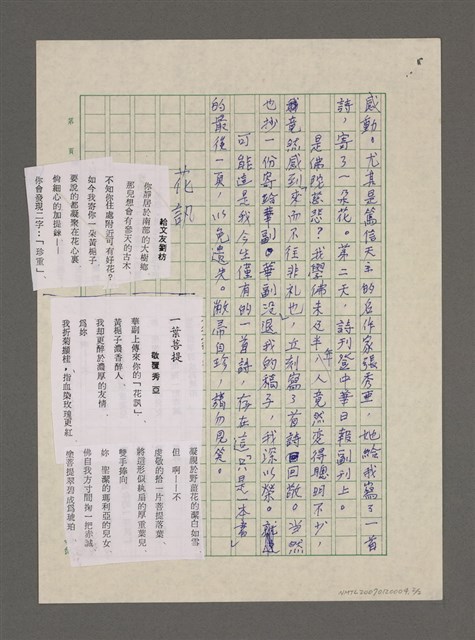 感動。尤其是篤信天主的名作家張秀亞，她給我寫了一首
詩，寄了一朵花。第二天，詩刊登中華日報副刊上。
是佛陀慈悲？我學佛未足半年，人竟然變得聰明不少，
我竟然感到「來而不往非禮也」，近刻寫了首詩回敬。當然
也抄一份寄給華副。華副沒退我的稿子，我深以榮。
可能這是我今生僅有的一首詩，存在這「只是一本書」
的最後一頁，以免遺失。敝帚自珍，請勿見笑。
花訊
給文友劉枋
你靜居於南部的大樹鄉
那兒想會有參天的古木
不知你住處附近可有好花？
如今我寄你一朵黃梔子
要說的都凝聚在花心裏
倘細心的加提鍊——
你會發現二字：「珍重」。
一葉菩提
敬覆秀亞
華副上傳來你的「花訊」，
黃梔子濃香醉人，
我卻更醉於濃厚的友情。
為妳
我折菊纏桂，指血染玫瑰更紅，
凝視於野薑花的潔白如雪
但　啊——不
虔敬的拾一片菩提落葉，
將這形似執扇的厚重葉兒，
雙手捧向
妳　聖潔的瑪利亞的兒女
佛自我方寸間掏一把赤誠
塗菩提翠碧成為琥珀
NMTL20070120009, 5/5